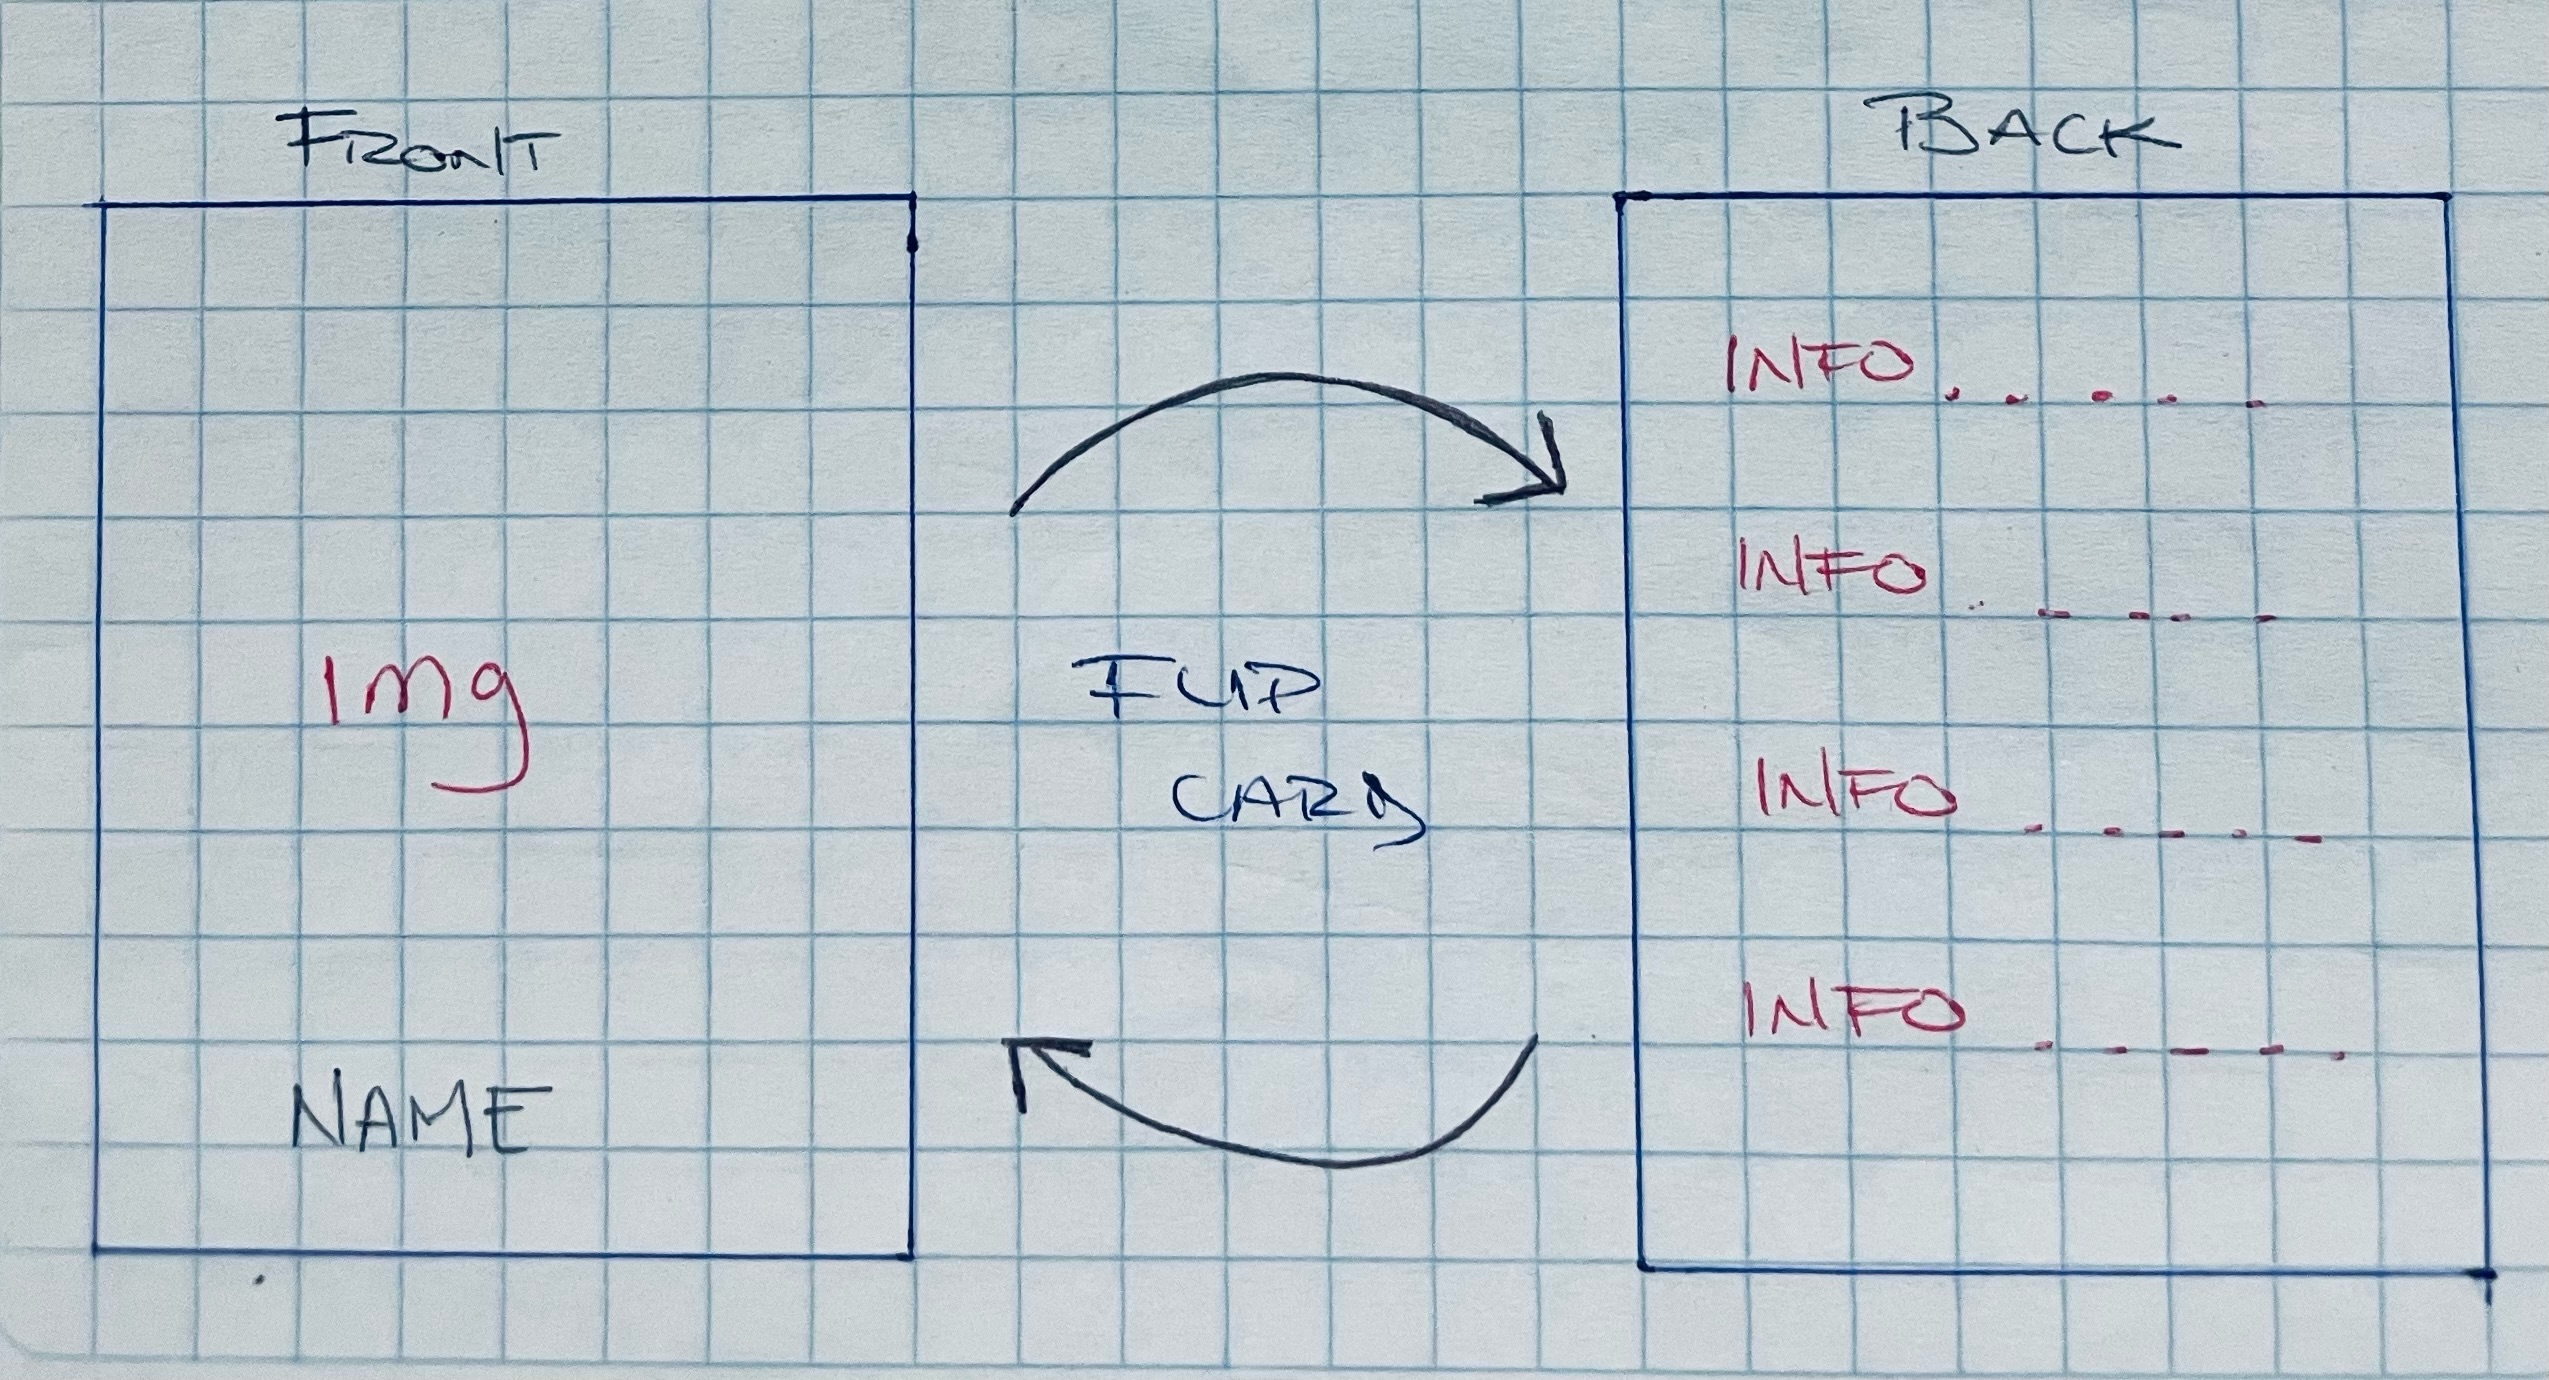 FRONT
Img
NAME
FLIP
CARD
BACK
INFO.....
INFO.----
INFO-----
INFO-----